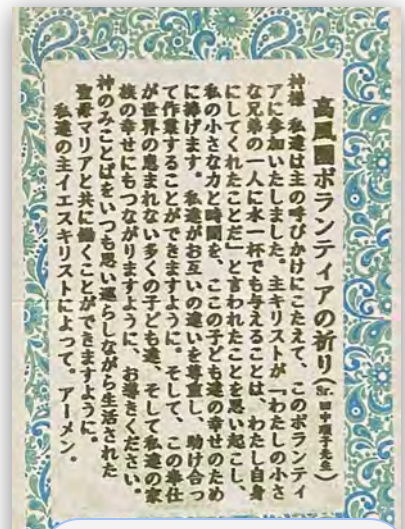 高風園ボランティアの祈り(Sr.田中順子先生)
神様 私達は主の呼びかけにこたえて、このボランティ
アに参加いたしました。主キリストが「わたしの小さ
な兄弟の一人に水一杯でも与えることは、わたし自身
にしてくれたことだ」と言われたことを思い起こし、
私の小さな力と時間を、ここの子ども達の幸せのため
に捧げます。私達がお互いの違いを尊重し、助け合っ
て作業することができますように。そして、この奉仕
が世界の恵まれない多くの子ども達、そして私達の家
族の幸せにもつながりますように、お導きください。
神のみことばをいつも思い巡らしながら生活された
聖母マリアと共に働くことができますように。
私達の主イエスキリストによって。アーメン。